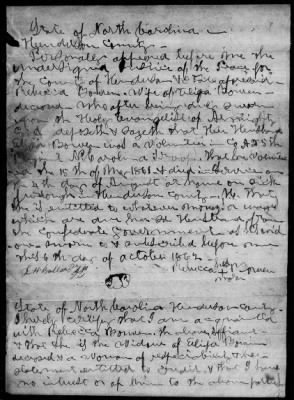 State of North Carolina
Henderson County
Personally appeared before me the
undersigned Justice of the Peace for
the County of Henderson & State aforesaid
Rebecca Bowen Wife of Elija Bowen
deceased Who after being duly sworn
upon the Holy Evangelist of Almighty
God deposeth & Sayeth that Her Husband
Elija Bowen was a Volunteer in Co A 25th
N Carolina Troops That
the 15th of May 1861 & died in Service on
the 4th day of August at home on Sick
Furlough in Henderson County
She is entitled to whatever
which are due her Husband from
the Confederate Government as
sworn to & subscribed before me
this 4th day of october 1862
Rebecca Bowen
her
X
mark
State of North Carolina Henderson County
I hereby Certify that I am acquainted
with Rebecca Bowen the above affiant
& that She is the Widow of Elija Bowen
deceased & a Woman of respectability & her
statement entitled to credit & that I have
no interest